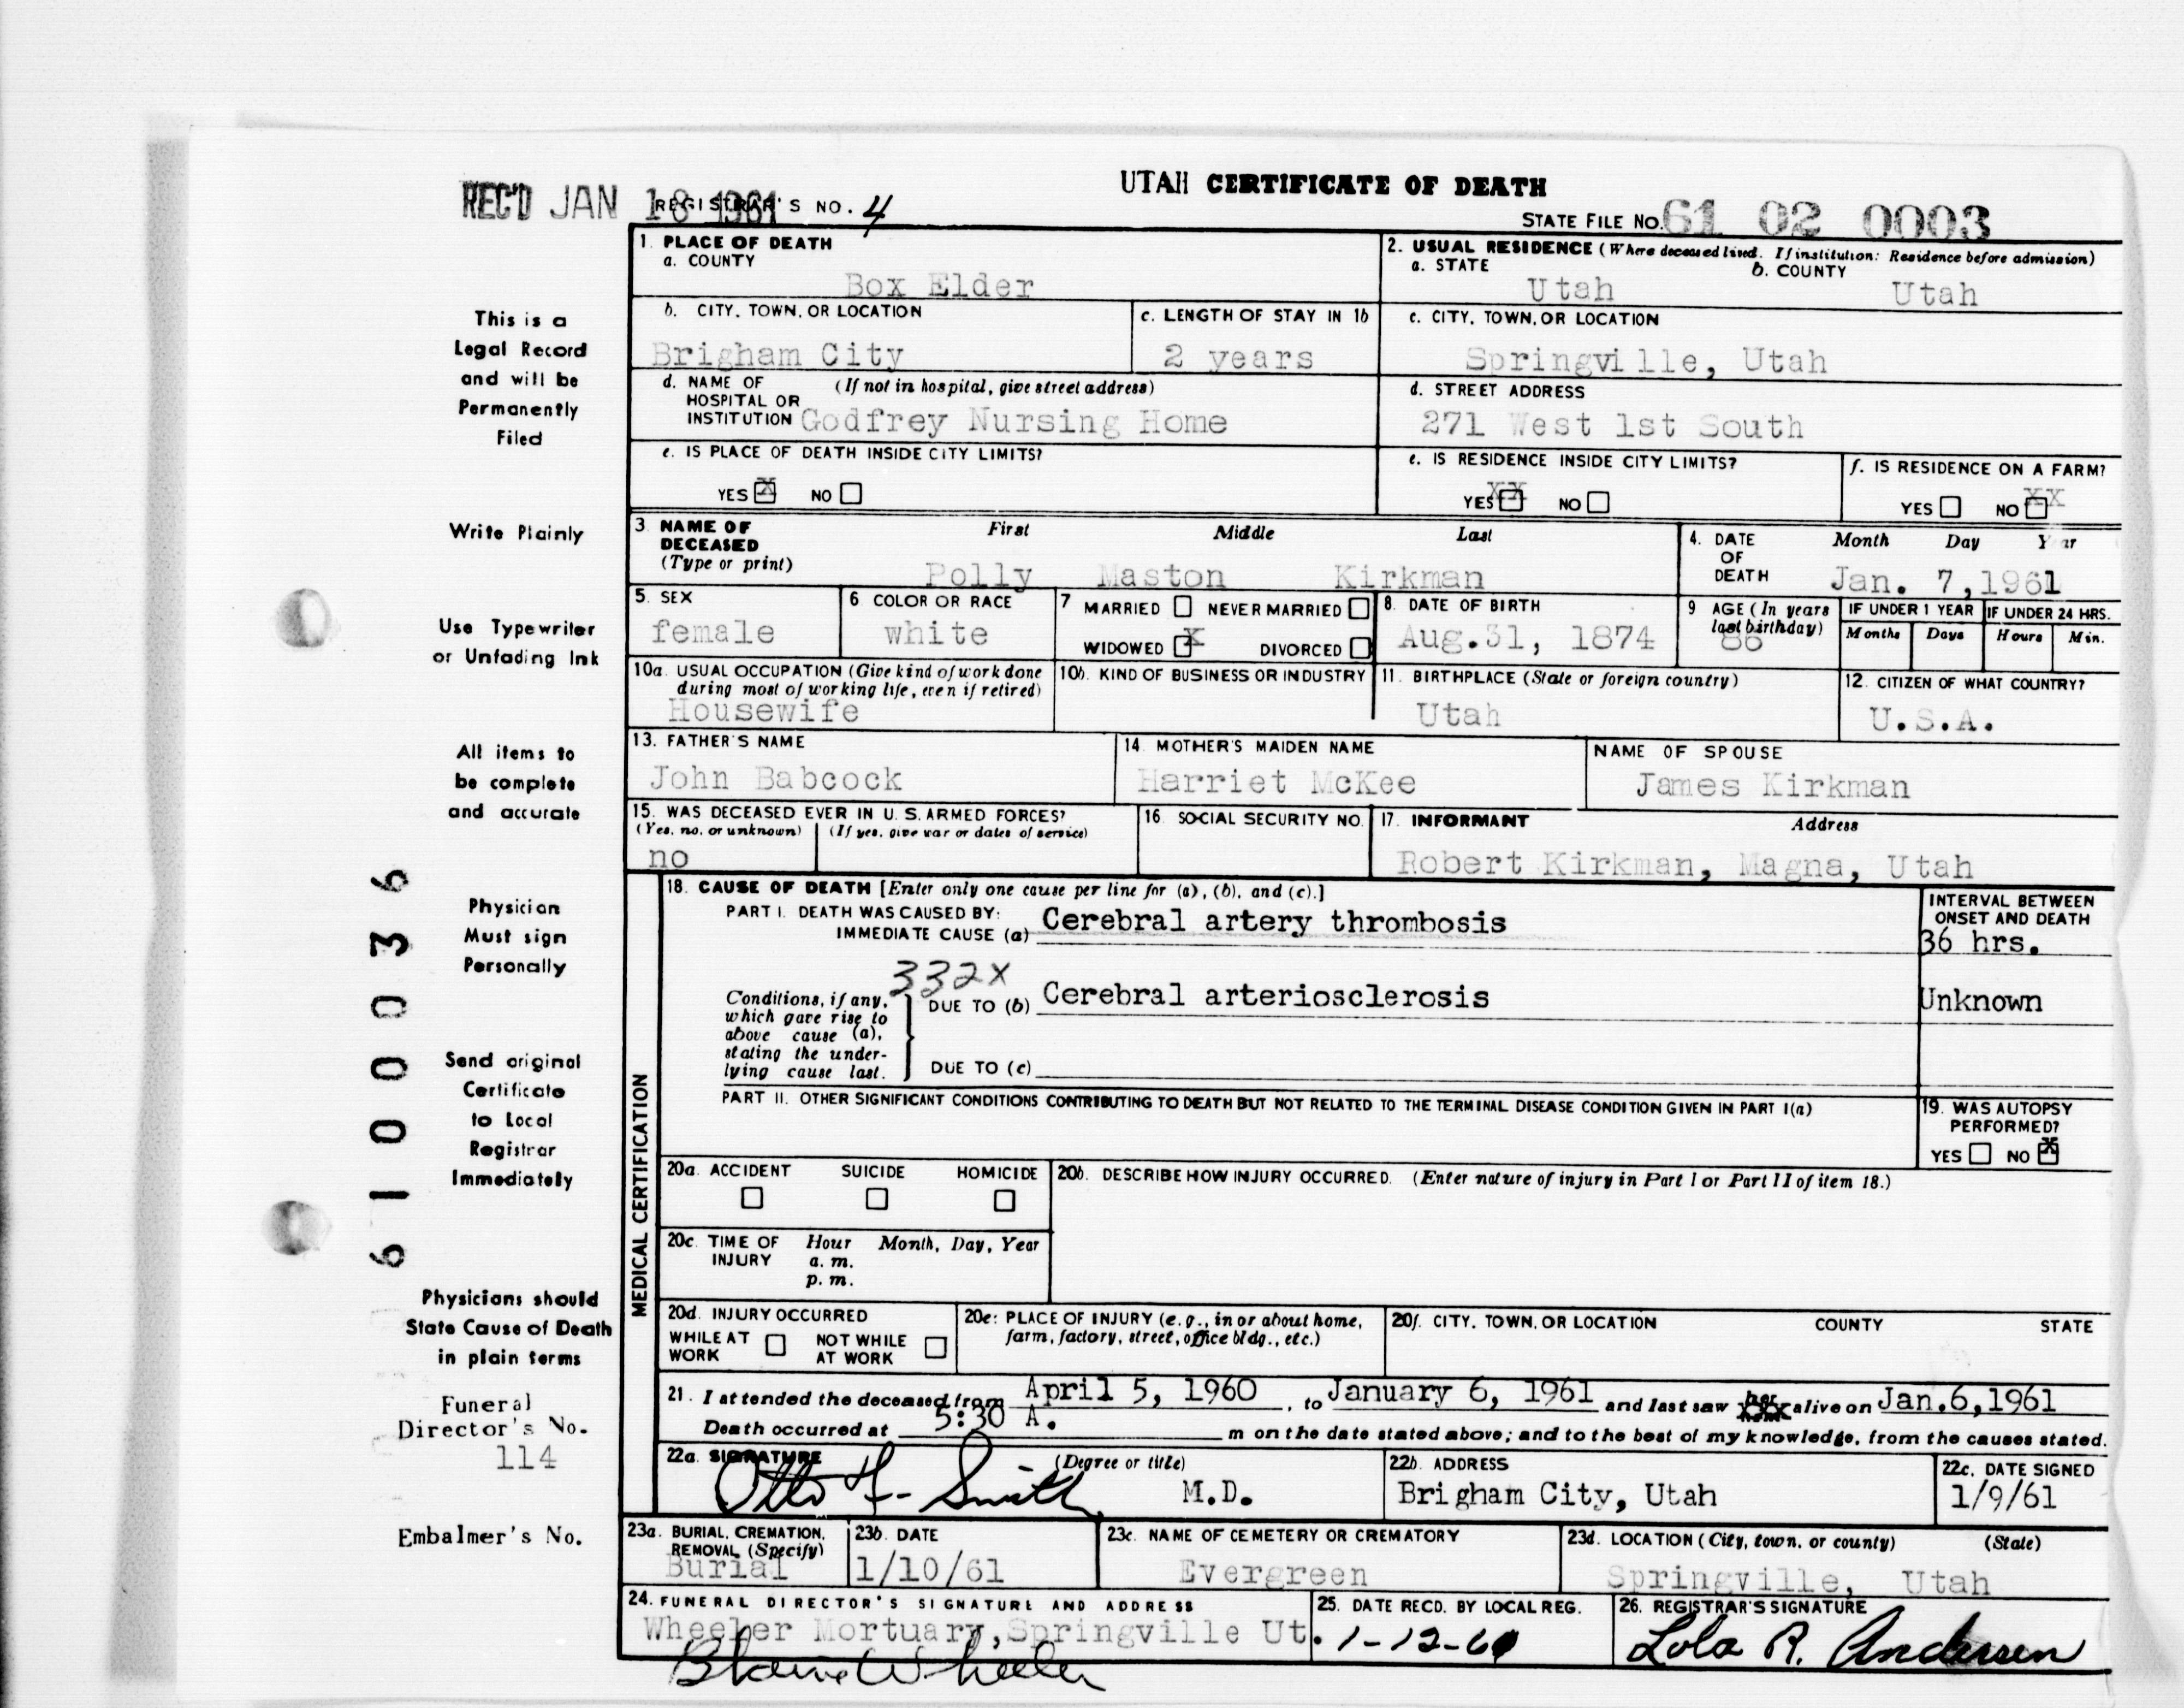 UTAH CERTIFICATE OF DEATH
REC'D JAN 18 1961
REGISTRAR'S NO. 4
STATE FILE NO. 61 02 0003
1. PLACE OF DEATH
a. COUNTY
Box Elder
2. USUAL RESIDENCE (Where deceased lived. If institution: Residence before admission)
a. STATE
Utah
b. COUNTY
Utah
b. CITY, TOWN, OR LOCATION
Brigham City
c. LENGTH OF STAY IN 1b
2 years
c. CITY, TOWN, OR LOCATION
Springville, Utah
d. NAME OF HOSPITAL OR INSTITUTION (If not in hospital, give street address)
Godfrey Nursing Home
d. STREET ADDRESS
271 West 1st South
e. IS PLACE OF DEATH INSIDE CITY LIMITS?
YES X NO
e. IS RESIDENCE INSIDE CITY LIMITS?
YES XX NO
f. IS RESIDENCE ON A FARM?
YES NO XX
3. NAME OF DECEASED (Type or print)
First Middle Last
Polly Maston Kirkman
4. DATE OF DEATH
Month Day Year
Jan. 7, 1961
5. SEX
female
6 COLOR OR RACE
white
7 MARRIED NEVER MARRIED
WIDOWED X DIVORCED
8. DATE OF BIRTH
Aug. 31, 1874
9 AGE (In years last birthday)
86
IF UNDER 1 YEAR
Months Days
IF UNDER 24 HRS.
Hours Min.
10a. USUAL OCCUPATION (Give kind of work done during most of working life, even if retired)
Housewife
10b. KIND OF BUSINESS OR INDUSTRY
11. BIRTHPLACE (State or foreign country)
Utah
12. CITIZEN OF WHAT COUNTRY?
U.S.A.
13. FATHER'S NAME
John Babcock
14. MOTHER'S MAIDEN NAME
Harriet McKee
NAME OF SPOUSE
James Kirkman
15. WAS DECEASED EVER IN U. S. ARMED FORCES?
(Yes, no, or unknown) (If yes, give war or dates of service)
no
16. SOCIAL SECURITY NO.
17. INFORMANT Address
Robert Kirkman, Magna, Utah
MEDICAL CERTIFICATION
18. CAUSE OF DEATH [Enter only one cause per line for (a), (b), and (c).]
PART I. DEATH WAS CAUSED BY:
IMMEDIATE CAUSE (a) Cerebral artery thrombosis
INTERVAL BETWEEN ONSET AND DEATH
36 hrs.
332X
Conditions, if any, which gave rise to above cause (a), stating the underlying cause last.
DUE TO (b) Cerebral arteriosclerosis
Unknown
DUE TO (c)
PART II. OTHER SIGNIFICANT CONDITIONS CONTRIBUTING TO DEATH BUT NOT RELATED TO THE TERMINAL DISEASE CONDITION GIVEN IN PART I(a)
19. WAS AUTOPSY PERFORMED?
YES NO X
20a. ACCIDENT SUICIDE HOMICIDE
20b. DESCRIBE HOW INJURY OCCURRED. (Enter nature of injury in Part I or Part II of item 18.)
20c. TIME OF INJURY Hour Month, Day, Year
a. m.
p. m.
20d. INJURY OCCURRED
WHILE AT WORK NOT WHILE AT WORK
20e: PLACE OF INJURY (e. g., in or about home, farm, factory, street, office bldg., etc.)
20f. CITY, TOWN, OR LOCATION COUNTY STATE
21. I attended the deceased from April 5, 1960, to January 6, 1961 and last saw her alive on Jan. 6, 1961
Death occurred at 5:30 A. m on the date stated above; and to the best of my knowledge, from the causes stated.
22a. SIGNATURE (Degree or title)
Otto F. Smith M.D.
22b. ADDRESS
Brigham City, Utah
22c. DATE SIGNED
1/9/61
23a. BURIAL, CREMATION, REMOVAL (Specify)
Burial
23b. DATE
1/10/61
23c. NAME OF CEMETERY OR CREMATORY
Evergreen
23d. LOCATION (City, town, or county) (State)
Springville, Utah
24. FUNERAL DIRECTOR'S SIGNATURE AND ADDRESS
Wheeler Mortuary, Springville Ut.
Blaine Wheeler
25. DATE RECD. BY LOCAL REG.
1-12-61
26. REGISTRAR'S SIGNATURE
Lola R. Andersen
This is a
Legal Record
and will be
Permanently
Filed
Write Plainly
Use Typewriter
or Unfading Ink
All items to
be complete
and accurate
Physician
Must sign
Personally
Send original
Certificate
to Local
Registrar
Immediately
Physicians should
State Cause of Death
in plain terms
Funeral
Director's No.
114
Embalmer's No.
6100036